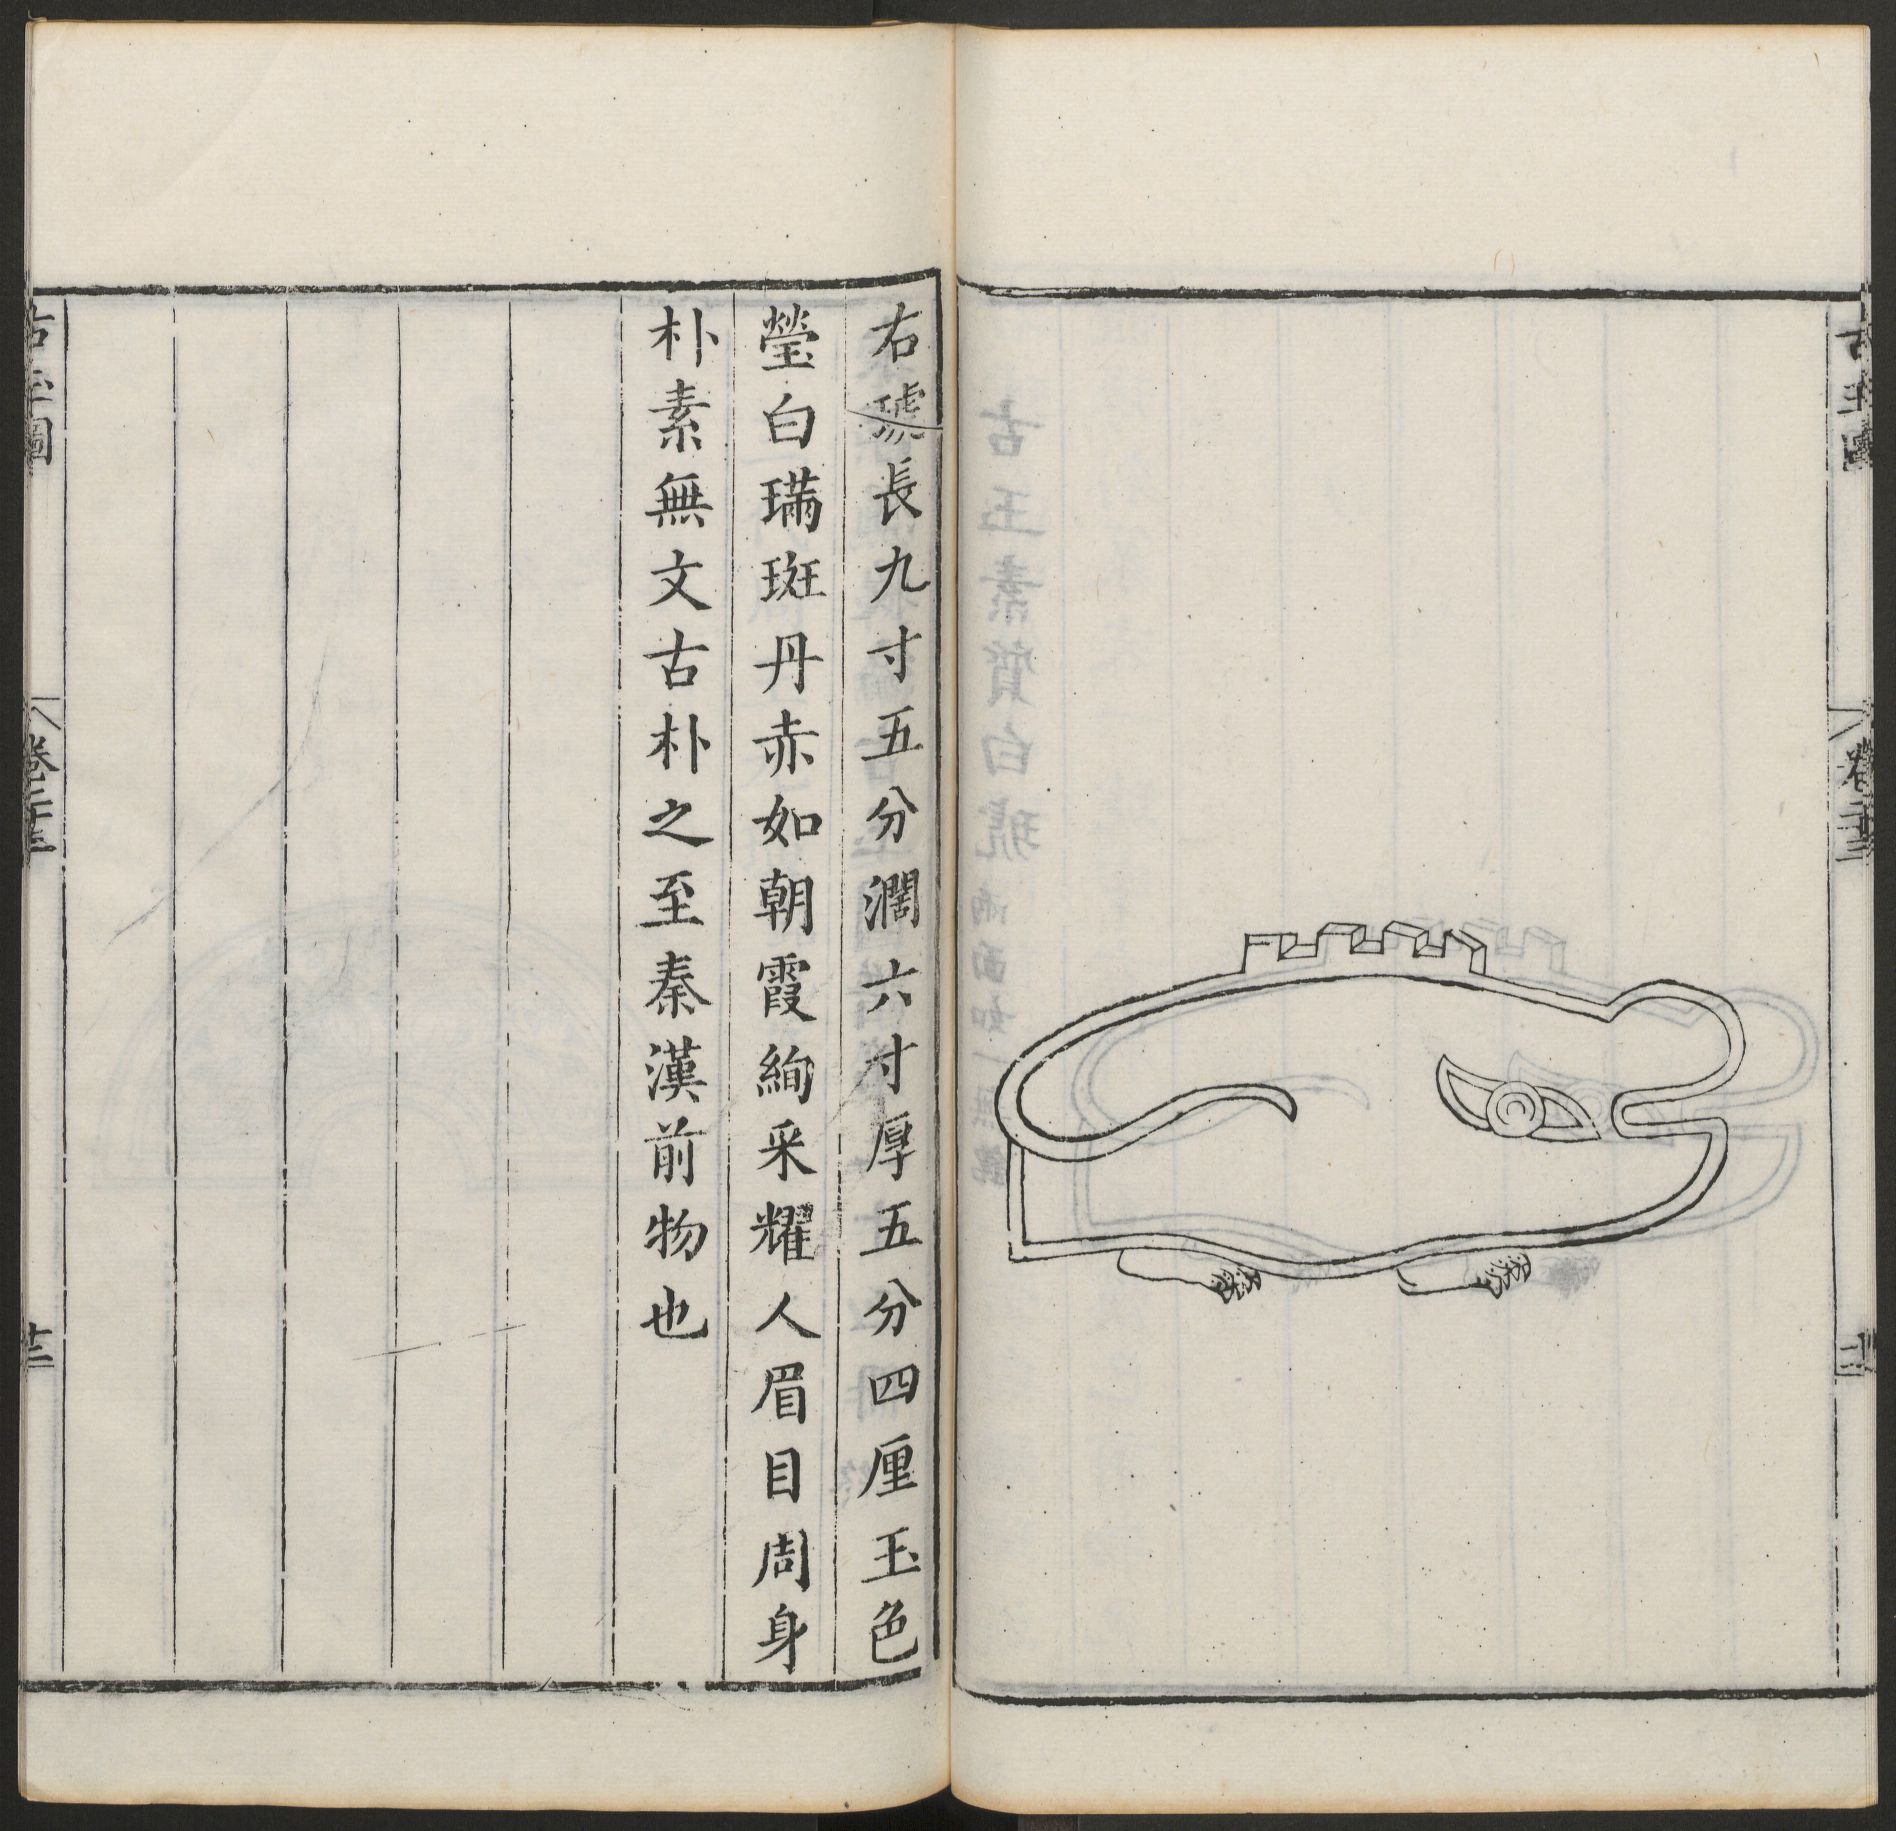 右琥長九寸五分濶六寸厚五分四厘玉色
瑩白璊斑丹赤如朝霞絢采耀人眉目周身
朴素無文古朴之至秦漢前物也
古玉圖
卷二十三
十三